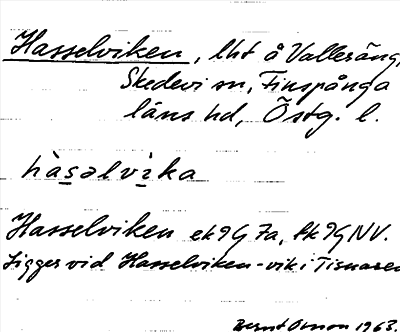 Hasselviken, lht å Valleräng,
Skedevi sn, Finspånga
läns hd, Östg. l.
hàsəlvìka
Hasselviken ek 9G 7a, tk 9G NV.
Ligger vid Hasselviken - vik i Tisnaren
Bernt Olsson 1963.